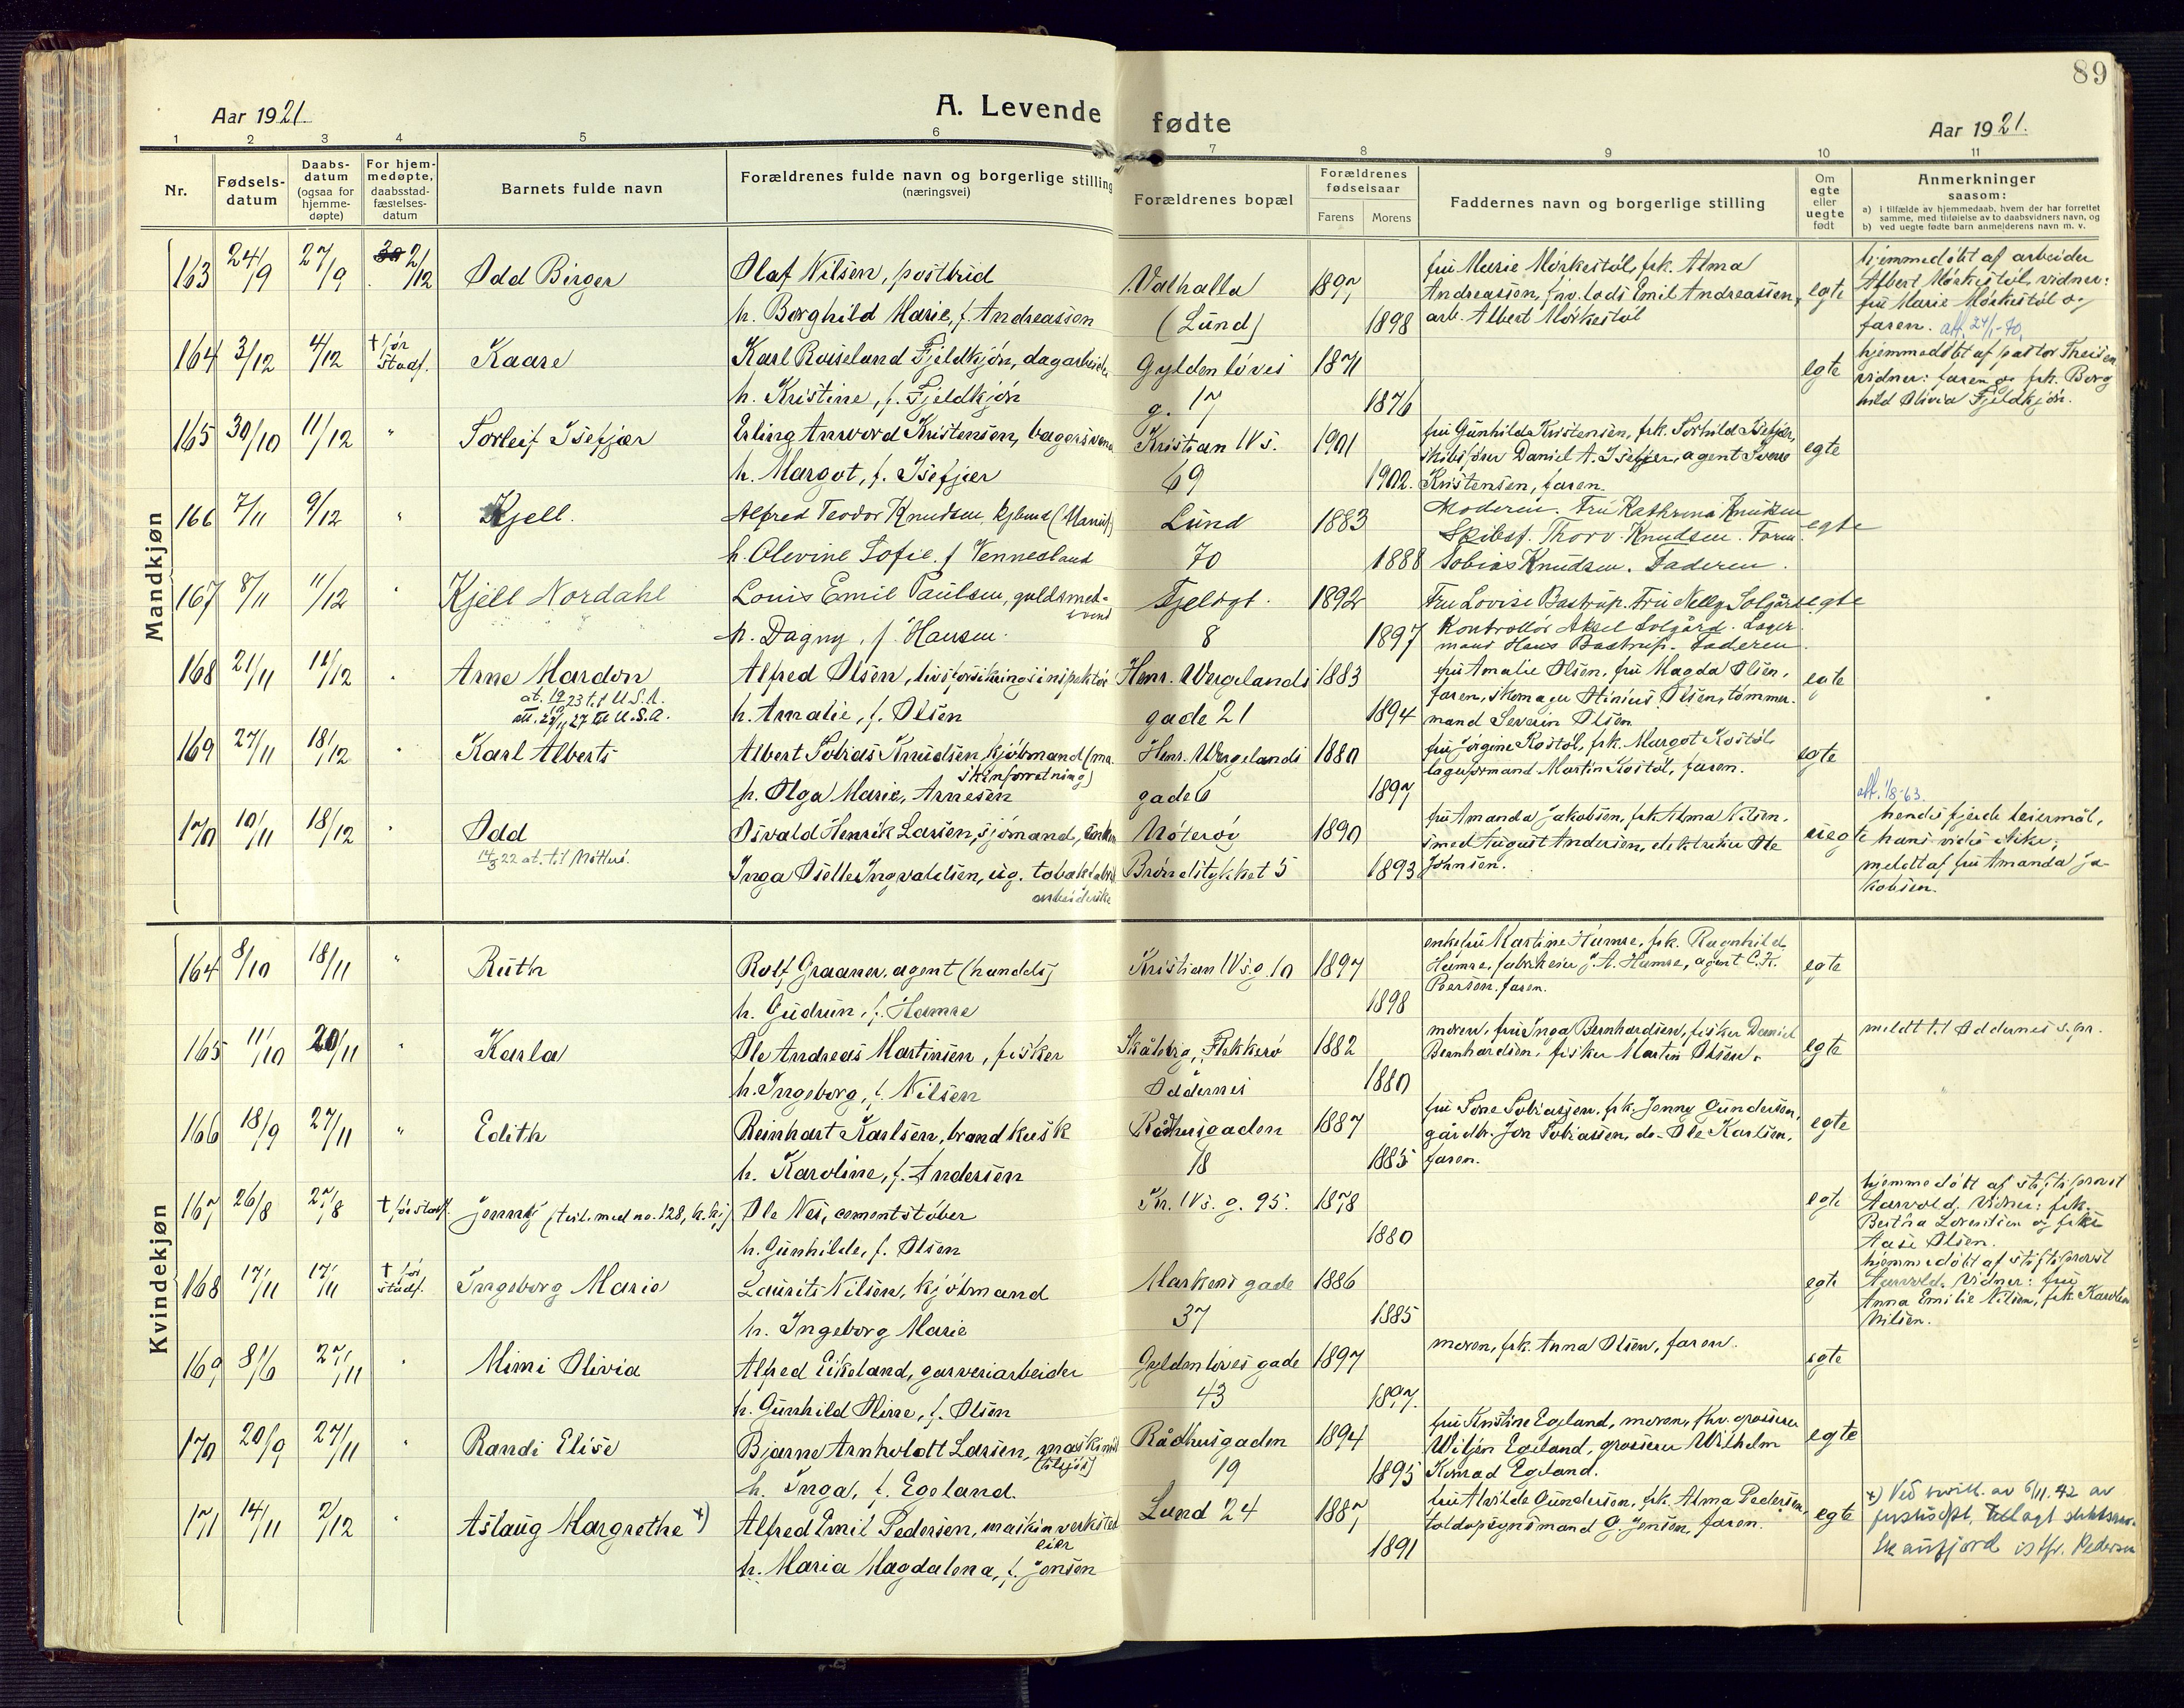 89
Aar 1921
A. Levende fødte
Aar 1921.
1 2 3 4 5 6 7 8 9 10 11
Nr.
Fødsels-
datum
Daabs-
datum
(ogsaa for
hjemme-
døpte)
For hjem-
medøpte,
daabsstad-
fæstelses-
datum
Barnets fulde navn
Forældrenes fulde navn og borgerlige stilling
(næringsvei)
Forældrenes bopæl
Forældrenes
fødselsaar
Farens Morens
Faddernes navn og borgerlige stilling
Om
egte
eller
uegte
født
Anmerkninger
saasom:
a) i tilfælde av hjemmedaab, hvem der har forrettet
samme, med tilføielse av to daabsvidners navn, og
b) ved uegte fødte barn anmelderens navn m. v.
Mandkjøn
163 24/9 27/9 2/12 Odd Birger
Olaf Nilsen, postbud
h. Borghild Marie, f. Andreassen
Valhalla
(Lund)
1897
1898
fru Marie Mørkestøl, frk. Alma
Andreassen, fhv. lods Emil Andreassen,
arb. Albert Mørkestøl
egte
hjemmedøbt af arbeider
Albert Mørkestøl, vidner:
fru Marie Mørkestøl og
faren. att. 24/1-40.
164 3/12 4/12 † før
stadf.
Kaare
Karl Roiseland Fjeldkjøn, dagarbeider
h. Kristine, f. Fjeldkjøn
Gyldenløves
g. 17
1871
1876
egte
hjemmedøbt af pastor
vidner: faren og frk. Borg
hild Olivia Fjeldkjøn.
165 30/10 11/12 " Torleif Isefjær
Erling Anvord Kristensen, bagersvend
h. Margot, f. Isefjær
Kristian IVs.
69
1901
1902.
fru Gunhilda Kristensen, frk. Torhild Isefjær,
skibsfører Daniel A. Isefjær, agent Sverre
Kristensen, faren.
egte
166 7/11 9/12 " Kjell.
Alfred Teodor Knudsen, kjøbmd (Manuf)
h. Olevine Sofie. f Vennesland
Lund
70
1883
1888
Moderen. Fru Kathrina Knudsen
Skibsf. Thorv. Knudsen. Form.
Tobias Knudsen. Faderen.
egte
167 8/11 11/12 " Kjell Nordahl
Louis Emil Paulsen, guldsmed-
svend
h. Dagny, f. Hansen.
Fjeldgt.
8
1892
1897
Fru Lovise Bastrup. Fru Nelly Solgård
Kontrollør Aksel Solgård. Lager
mand Hans Bastrup. Faderen.
egte
168 21/11 12/12 " Arne Mardon
U.S.A.
27 til U.S.A.
Alfred Olsen, livsforsikringsinspektør
h. Amalie, f. Olsen
Henr. Wergelands
gade 21
1883
1894
fru Amalie Olsen, fru Magda Olsen,
faren, skomager Hinius Olsen, tømmer.
mand Severin Olsen
egte
169 27/11 18/12 " Karl Alberts
Albert Tobias Knudsen, kjøbmand (ma
skinforretning)
h. Olga Marie, Arnesen
Henr. Wergelands
gade 6
1880
1897
fru Jørgine Rostøl, frk. Margot Rostøl,
lagerformand Martin Rostøl, faren.
egte
att. 1/8-63
170 10/11 18/12 " Odd
14/3 22 at. til Nøtterø.
Osvald Henrik Larsen, sjømand,
Inga Oselle Ingvaldsen, ug. tobakfabrik
arbeiderske
Nøterøy
Brønstykket 5
1890
1893
fru Amanda Jakobsen, frk Alma Nilsen.
smed August Andersen, elektriker Ole
Johnsen.
uegte
hendes fjerde leiermål,
hans vides ikke;
meldt af fru Amanda Ja-
kobsen.
Kvindekjøn
164 8/10 18/11 " Ruth
Rolf Graaner, agent (handels)
h. Gudrun, f. Hamre
Kristian IVs. g. 10
1897
1898
enkefru Martine Hamre, frk. Ragnhild
Hamre, fabrikeier J. A. Hamre, agent C. K.
faren.
egte
165 11/10 20/11 " Karla
Ole Andreas Martinsen, fisker
h. Ingeborg, f. Nilsen
Skålevig, Flekkerø
Oddernes
1882
1880
moren, fru Inga Bernhardsen, fisker Daniel
Bernhardsen, fisker Martin Olsen.
egte
meldt til Oddernes s.pr.
166 18/9 27/11 " Edith
Reinhart Karlsen, brandkusk
h. Karoline, f. Andersen
Rådhusgaden
18
1887
1885
fru Tone Tobiassen, frk. Jenny Gundersen,
gårdbr. Jon Tobiassen, do- Ole Karlsen,
faren.
egte
167 26/8 27/8 † før stadf. Jenny (tvil. med no. 128, h. kj)
Ole Nes, cementstøber
h. Gunhilde, f. Olsen
Kr. IVs. g. 95.
1878
1880
egte
hjemmedøbt af stiftsprovst
Aarvold. Vidner: frk.
Bertha Lorentsen og frk
Aase Olsen.
168 17/11 17/11 † før
stadf.
Ingeborg Marie
Laurits Nilsen, kjøbmand
h. Ingeborg Marie
Markens gade
37
1886
1885
egte
hjemmedøbt af stiftsprovst
Aarvold. Vidner: fru
Anna Emilie Nilsen, frk. Karoline
Nilsen.
169 8/6 27/11 " Mimi Olivia
Alfred Eikeland, garveriarbeider
h. Gunhild Oline, f. Olsen
Gyldenløves gade
43
1897
1897.
moren, frk. Anna Olsen, faren.
egte
170 20/9 27/11 " Randi Elise
Bjarne Arnholdt Larsen, maskinist
(tilsjøs)
h. Inga, f. Egeland.
Rådhusgaden
19
1894
1895
fru Kristine Egeland, moren, fhv. grosserer
Wiljen Egeland, grosserer Wilhelm
Konrad Egeland.
egte
171 14/11 2/12 Aslaug Margrethe x)
Alfred Emil Pedersen, maskinverksted
eier
h. Maria Magdalena, f. Jensen
Lund 24
1887
1891
fru Alvilde Gundersen, frk. Alma Pedersen,
toldopsynsmand G. Jensen, faren.
egte
x) Ved bevill. av 6/11.42 av
justisdept. tillagt slektsnavn
Skaufjord istf. Pedersen